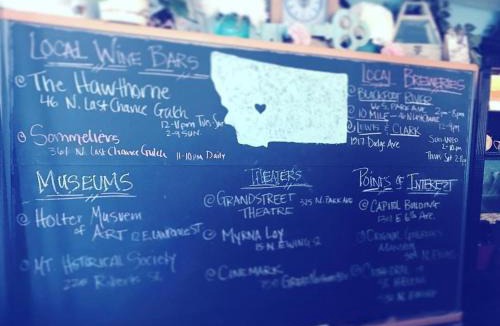 LOCAL WINE BARS
@ The Hawthorne
46 N. Last Chance Gulch
12-11pm Tues-Sat
2-9 SUN.
@ Sommeliers
361 N. Last Chance Gulch 11-10pm Daily
LOCAL BREWERIES
@ BLACKFOOT RIVER
66 S. PARK AVE 2pm-8pm
@ 10 MILE - 48 N Last Chance
12-8pm
@ LEWIS & CLARK
1517 Dodge Ave
MUSEUMS
@ Holter Museum
of ART 12 E. LAWRENCE ST
@ MT HISTORICAL Society
225 Roberts St.
THEATERS
@ GRANDSTREET 325 N. PARK AVE
THEATRE
@ MYRNA LOY
15 N. EWING ST
@ CINEMARK
POINTS of INTEREST
@ CAPITOL BUILDING
1301 E 6th Ave.
@ ORIGINAL GOVERNOR'S
MANSION
304 N. EWING
@ CATHEDRAL of
ST HELENA
530 N. EWING